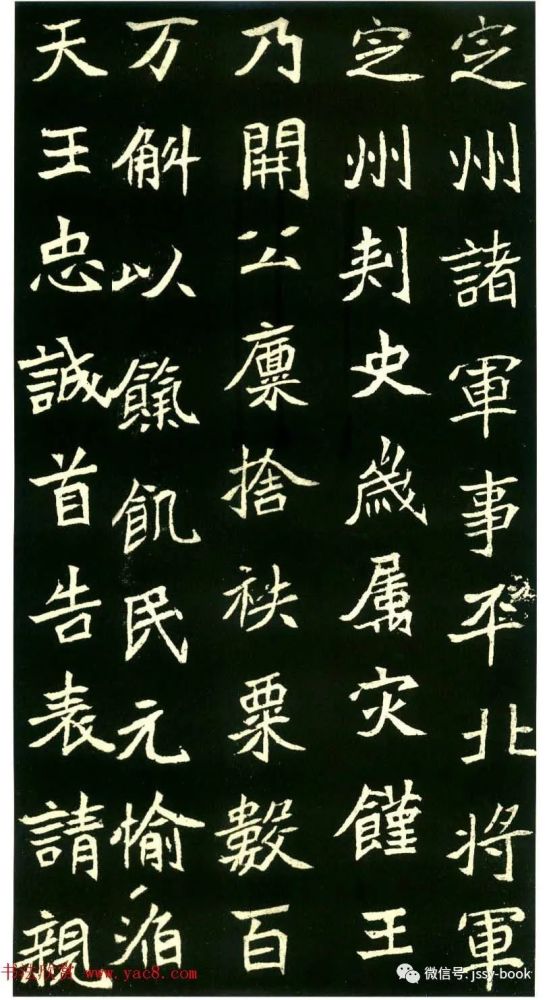 定州諸軍事平北将軍
定州刾史歳属灾饉王
乃開公廪捨袟粟數百
万斛以餼飢民元愉㴞
天王忠誠首告表請親
书法欣赏 www.yac8.com
微信号: jssy-book